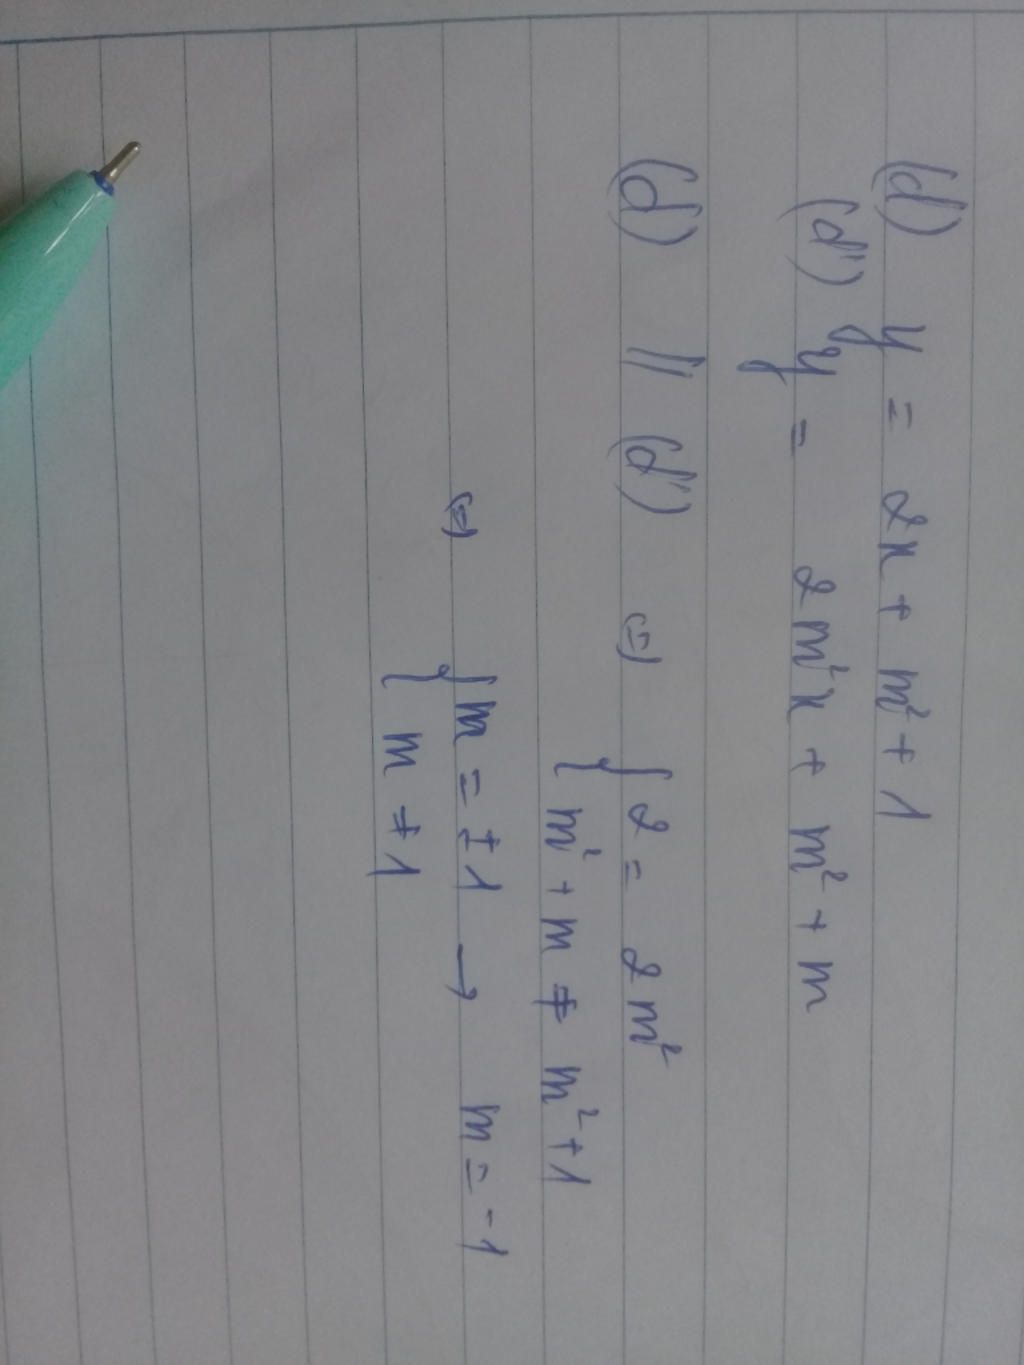 (d) y = 2x + m² + 1
(d') y = 2m²x + m² + m
(d) // (d') (=) { 2 = 2m²
{ m² + m ≠ m² + 1
(=) { m = ±1 → m = -1
{ m ≠ 1